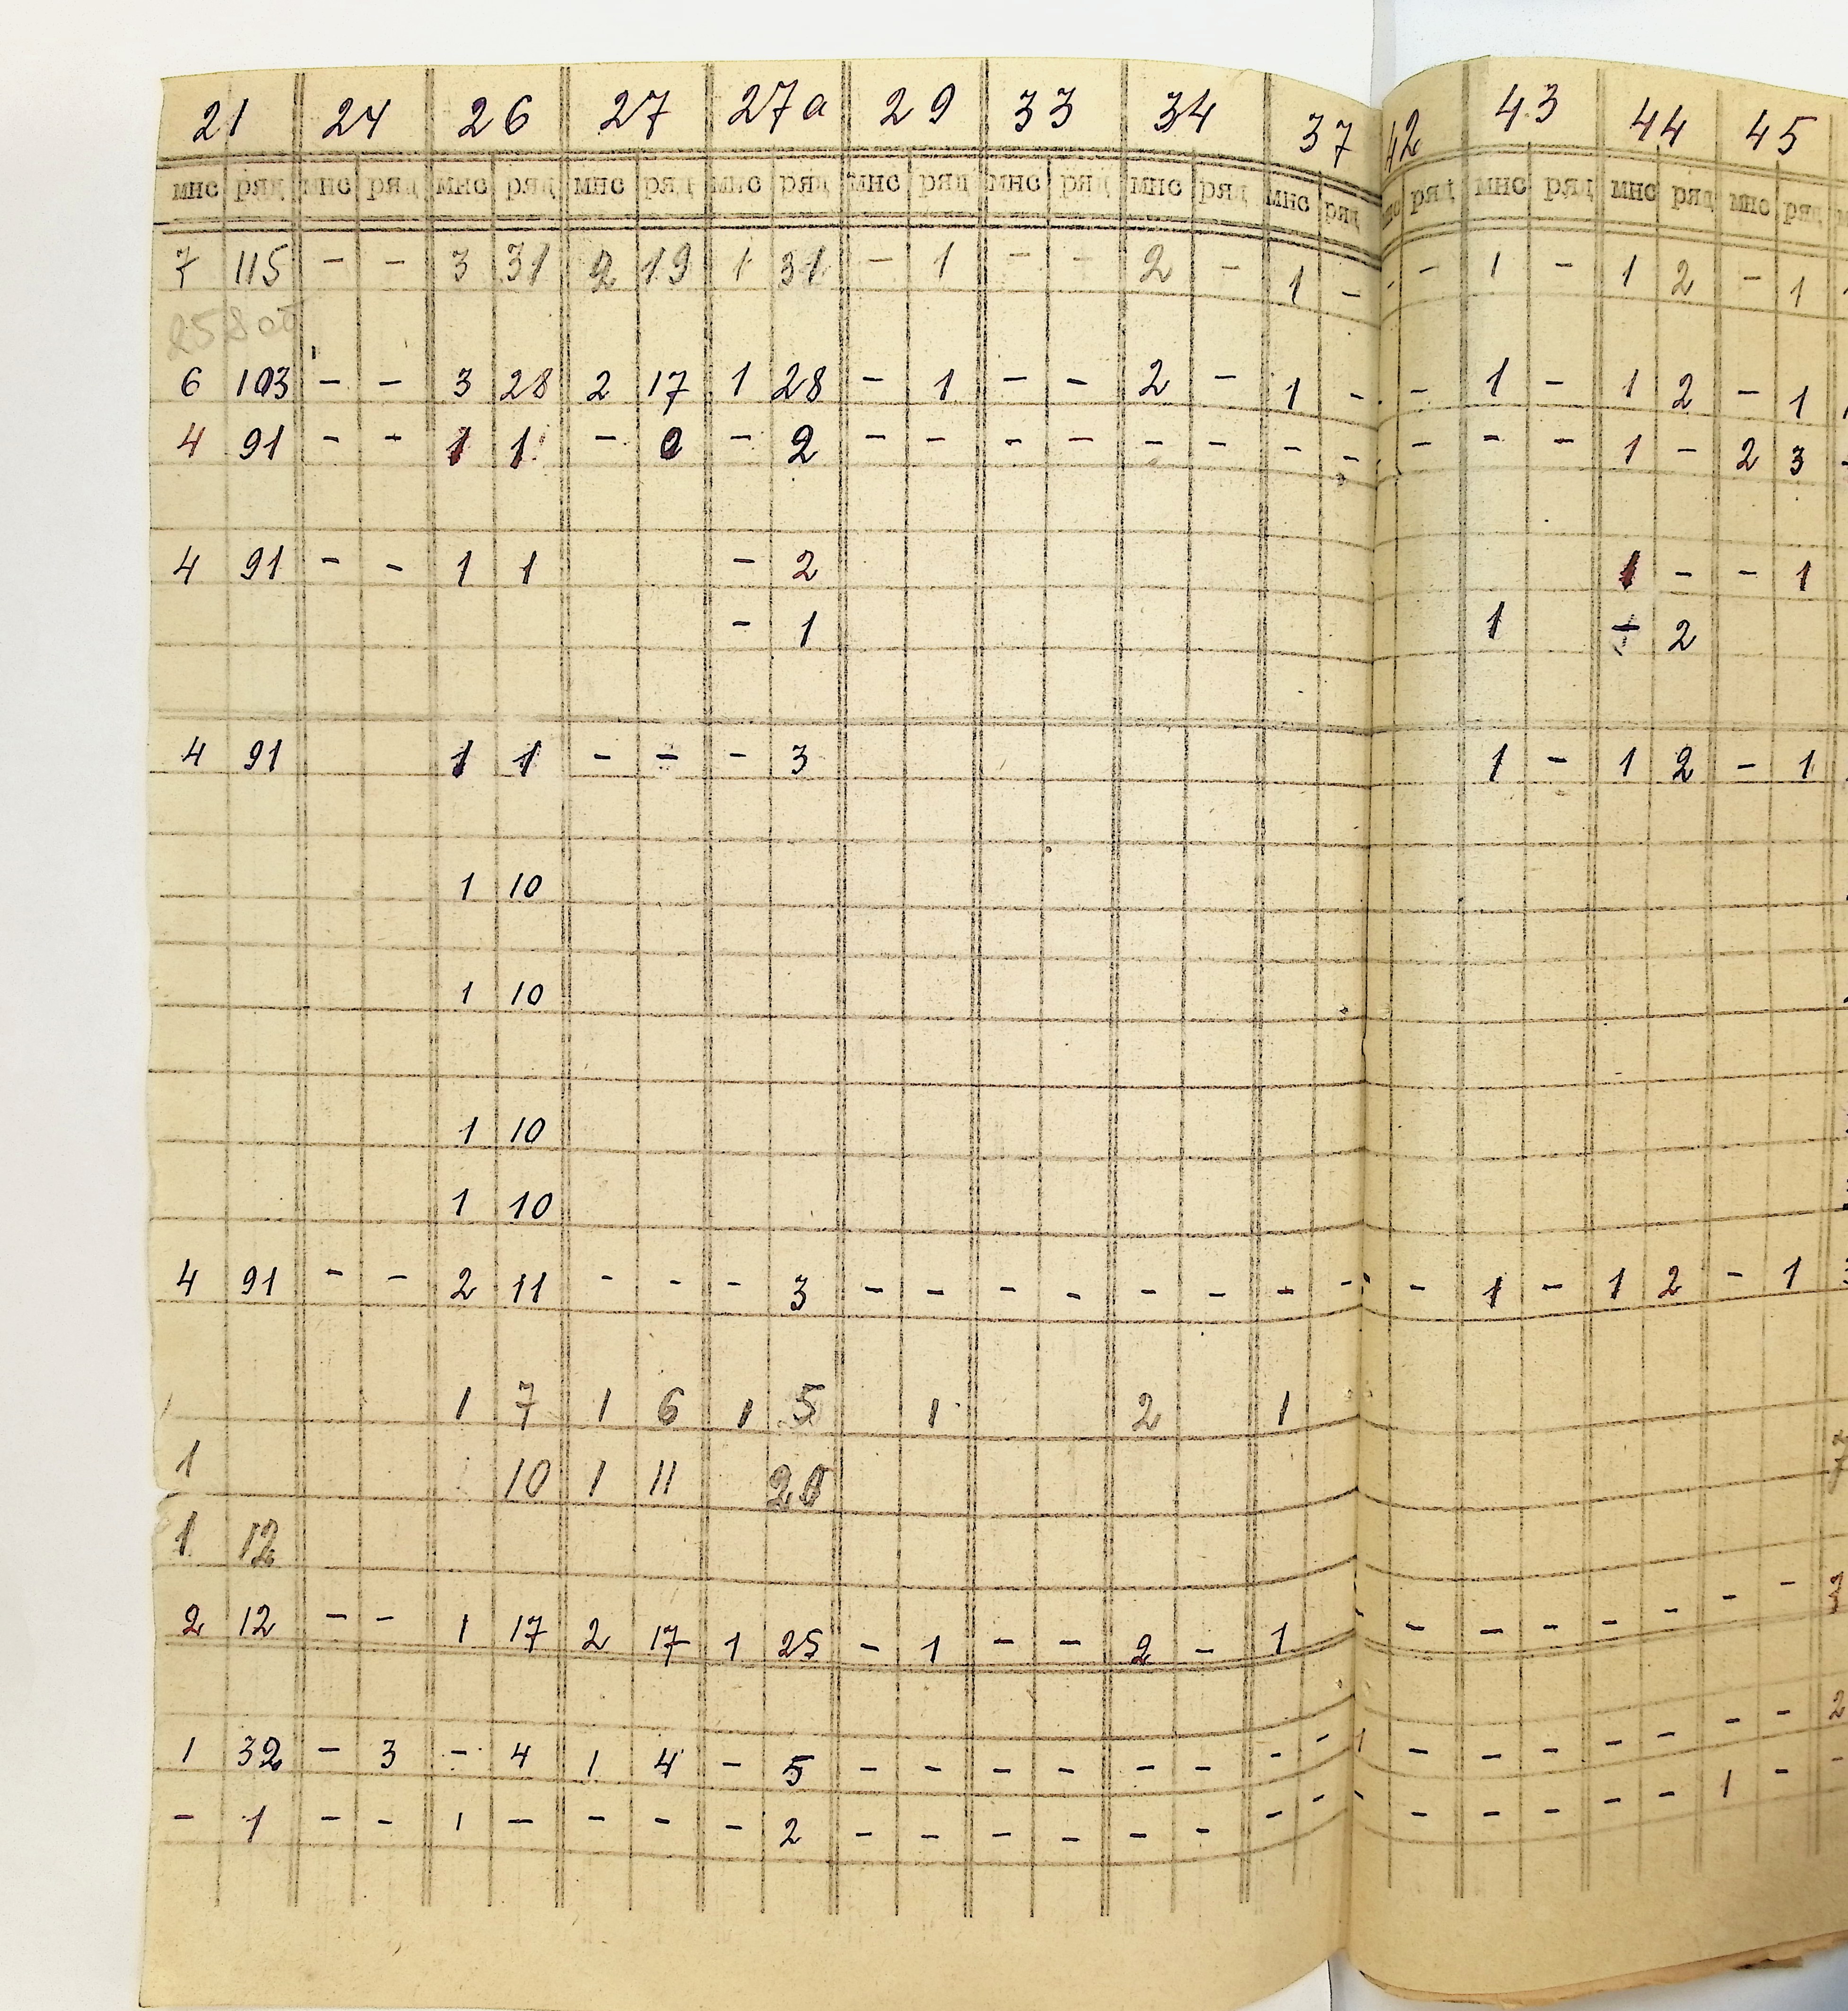 21 24 26 27 27а 29 33 34 37 42 43 44 45
мнс ряд мнс ряд мнс ряд мнс ряд мнс ряд мнс ряд мнс ряд мнс ряд мнс ряд ряд мнс ряд мнс ряд мнс ряд
7 115 - - 3 31 2 19 1 31 - 1 - - 2 - 1 - - - 1 - 1 2 - 1
258 об
6 103 - - 3 28 2 17 1 28 - 1 - - 2 - 1 - - 1 - 1 2 - 1
4 91 - - 1 1 - - 2 - - - - - - - - - - - 1 - 2 3
4 91 - - 1 1 - 2 1 - - 1
- 1 1 - 2
4 91 1 1 - - - 3 1 - 1 2 - 1
1 10
1 10
1 10
1 10
4 91 - - 2 11 - - - 3 - - - - - - - - - 1 - 1 2 - 1
1 7 1 6 1 5 1 2 1
1 10 1 11 20
1 12
2 12 - - 1 17 2 17 1 25 - 1 - - 2 - 1 - - - - - - - -
1 32 - 3 - 4 1 4 - 5 - - - - - - - - 1 - - - - - - -
- 1 - - 1 - - - - 2 - - - - - - - - - - - - - - 1 -